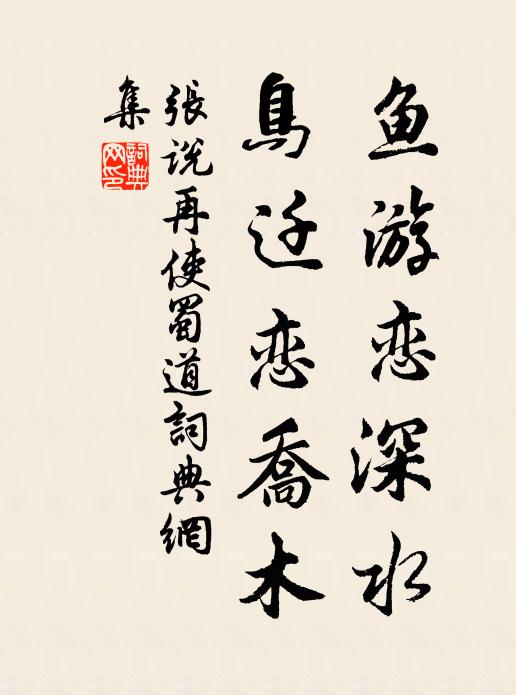 鱼游恋深水
鳥迁恋喬木
張説再使蜀道詞典網
集
詞典
网印